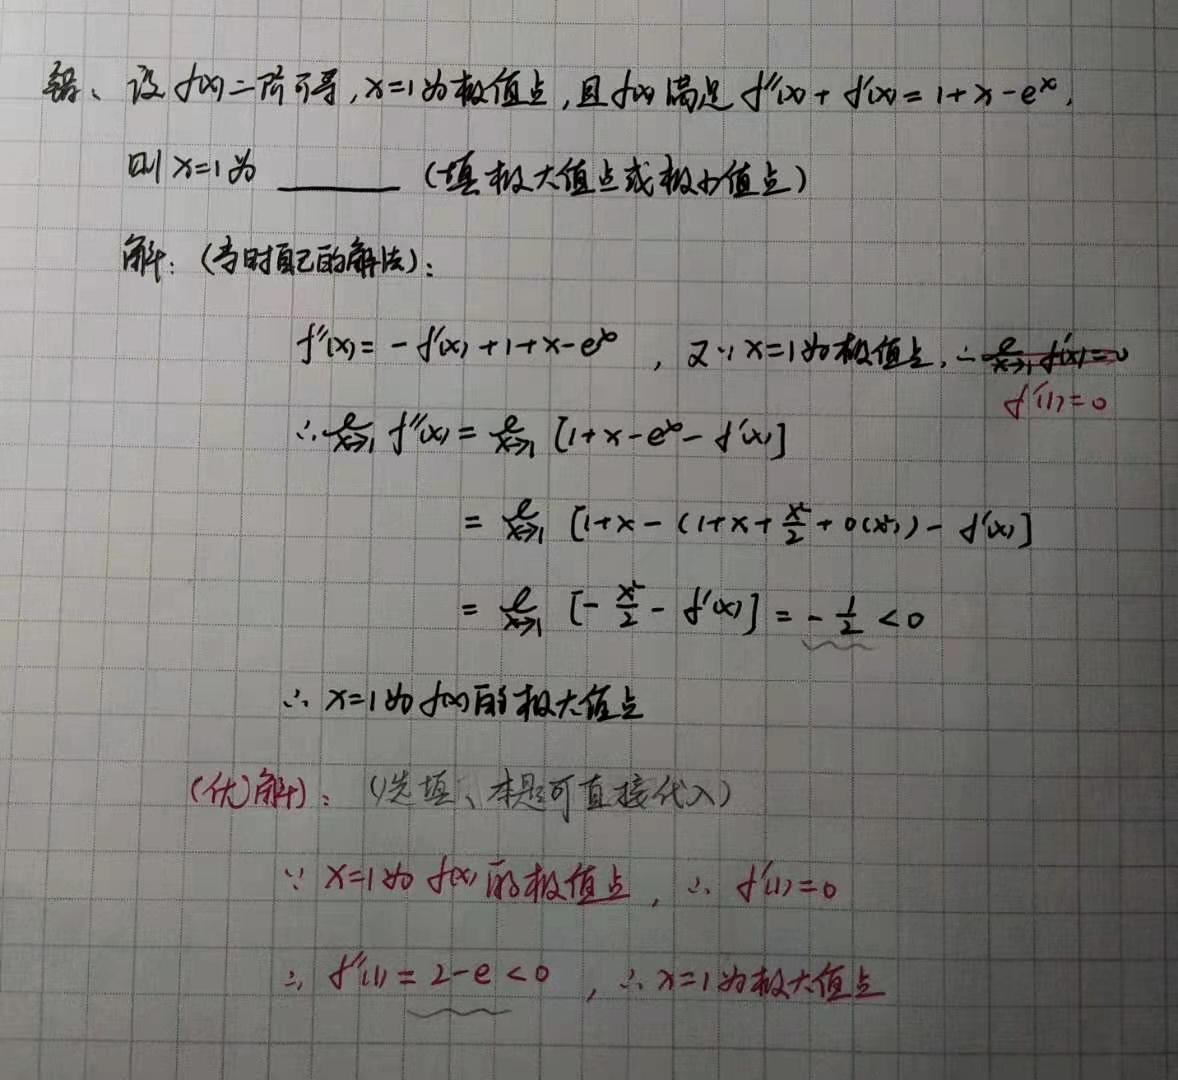 错、设 f(x) 二阶可导,x=1为极值点,且f(x)满足 f''(x) + f'(x) = 1+x-eˣ,
则 x=1为 ______ (填极大值点或极小值点)
解:(当时自己的解法):
f''(x) = -f'(x) +1+x-eˣ , 又∵x=1为极值点,∴ ℓ x→1 f'(x)=0
f'(1)=0
∴ ℓ x→1 f''(x) = ℓ x→1 [1+x-eˣ-f'(x)]
= ℓ x→1 [1+x-(1+x+x²/2+o(x²))-f'(x)]
= ℓ x→1 [-x²/2-f'(x)] = -1/2 <0
∴ x=1为f(x)的极大值点
(优)解):(选填、本题可直接代入)
∵ x=1为 f(x) 的极值点,∴ f'(1)=0
∴ f''(1) = 2-e <0 ,∴ x=1为极大值点